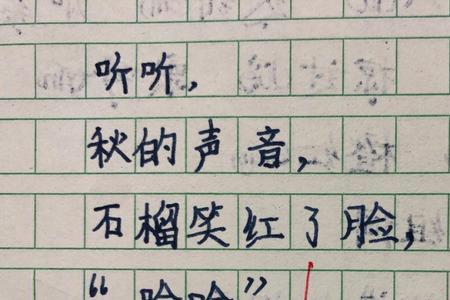 听听，
秋的声音，
石榴笑红了脸，
“哈哈”